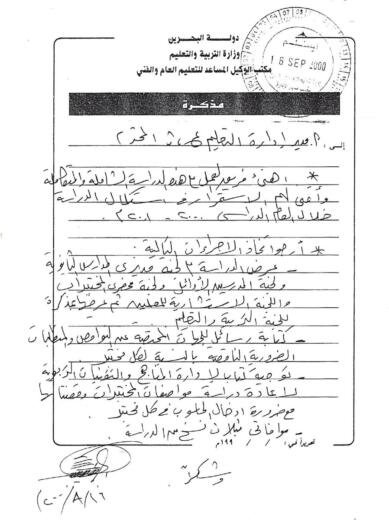 دولة البحرين
وزارة التربية والتعليم
مكتب الوكيل المساعد للتعليم العام والفني
استلم
16 SEP 2000
مذكرة
إلى: مدير إدارة التعليم المحترم
* أهنئ فريق العمل هذه الدراسة الشاملة والمتكاملة
وأتمنى لهم الاستقرار في استكمال الدراسة
خلال العام الدراسي ٢٠٠٠ - ٢٠٠١م.
* أرجو اتخاذ الإجراءات التالية:
- عرض الدراسة لجنة مديري المدارس الثانوية
ولجنة المدرسين الأوائل ولجنة محضري المختبرات
واللجنة الاستشارية للمعلمين ثم عرضها
للجنة التربية والتعليم
- كتابة رسائل للجهات المختصة عن النواقص والمتطلبات
الضرورية الناقصة بالنسبة لكل مختبر
- توجيه كتاب لإدارة المناهج والتقنيات التربوية
لإعادة دراسة مواصفات المختبرات
مع ضرورة إدخال الحاسوب في كل مختبر
- موافاتي بثلاث نسخ من الدراسة.
تحريراً في: / / ١٩٩م
وشكراً